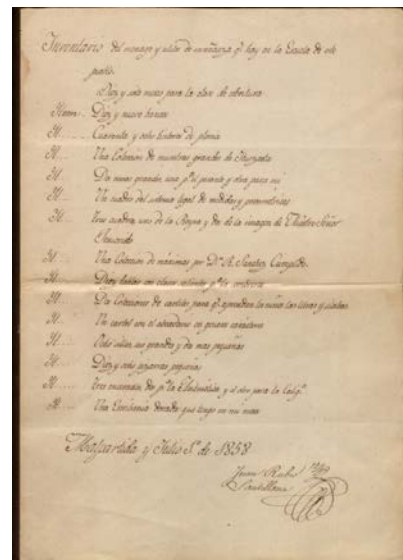 Inventario del menage y utiles de enseñanza q.e hay en la Escuela de este
pueblo.
Diez y seis mesas para la clase de escritura
Ittem.. Diez y nueve bancos
It.... Cuarenta y ocho tinteros de plomo
It... Una Coleccion de muestras grandes de Iturzaeta
It... Dos mesas grandes, una p.a el pasante y otra para mi
It... Un cuadro del sistema legal de medidas y
It... tres cuadros, uno de la Reyna y dos de la imagen de Nuestro Señor
It... Una Coleccion de maximas por D.n R. Sanchez
It... Diez
It... Dos Colecciones de carteles para q.e aprendan los niños las letras y silabas
It... Un cartel con el abecedario en grueso caracter
It... Ocho sillas, grandes y dos mas pequeñas
It... Diez y ocho pizarras pequeñas
It... tres dos p.a la y el otro para la
It... Una Escribania dorada que tengo en mi mesa
Malpartida y Julio 1.o de 1858
Juan Rubio
Santillana